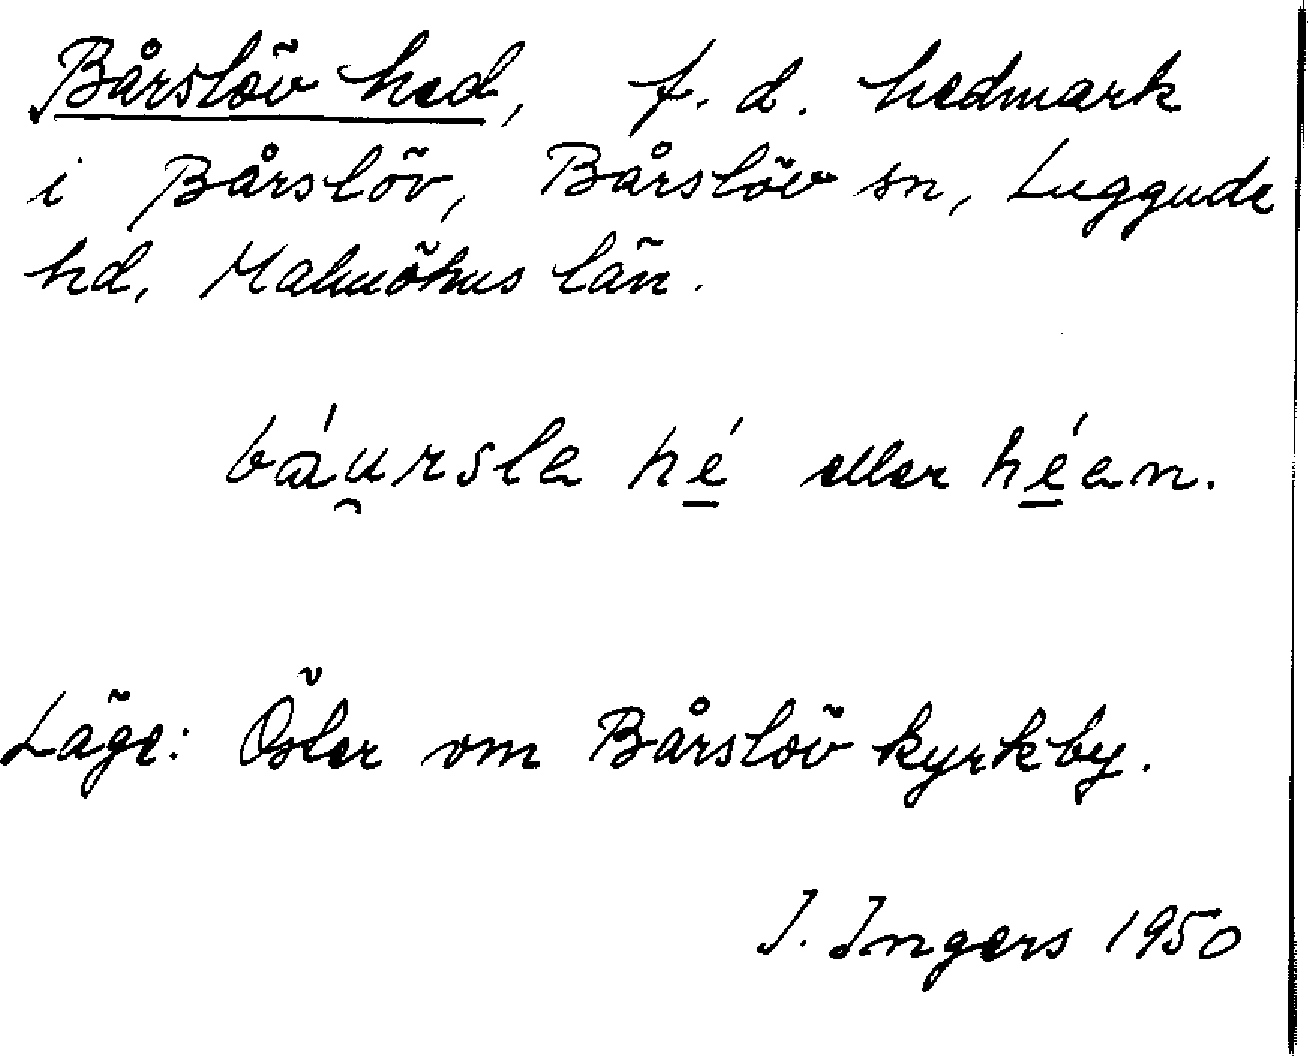 Bårslöv hed, f. d. hedmark
i Bårslöv, Bårslöv sn, Luggude
hd, Malmöhus län.
báu̯rsla hé̲ eller hé̲an.
Läge: Öster om Bårslöv kyrkby.
I. Ingers 1950